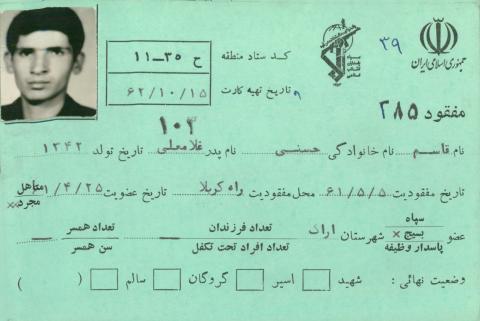 جمهوری اسلامی ایران
۳۹
سپاه پاسداران انقلاب اسلامی
کد ستاد منطقه ح ۳۵-۱۱
تاریخ تهیه کارت ۶۲/۱۰/۱۵
مفقود ۲۸۵
۱۰۳
نام قاسم نام خانوادگی حسنی نام پدر غلامعلی تاریخ تولد ۱۳۴۲
تاریخ مفقودیت ۶۱/۵/۵ محل مفقودیت راه کربلا تاریخ عضویت ۶۱/۴/۲۵ متاهل
مجرد ××
عضو سپاه
بسیج ×
پاسدار وظیفه
شهرستان اراک تعداد فرزندان —
تعداد افراد تحت تکفل
تعداد همسر —
سن همسر
وضعیت نهائی : شهید اسیر گروگان سالم ( )